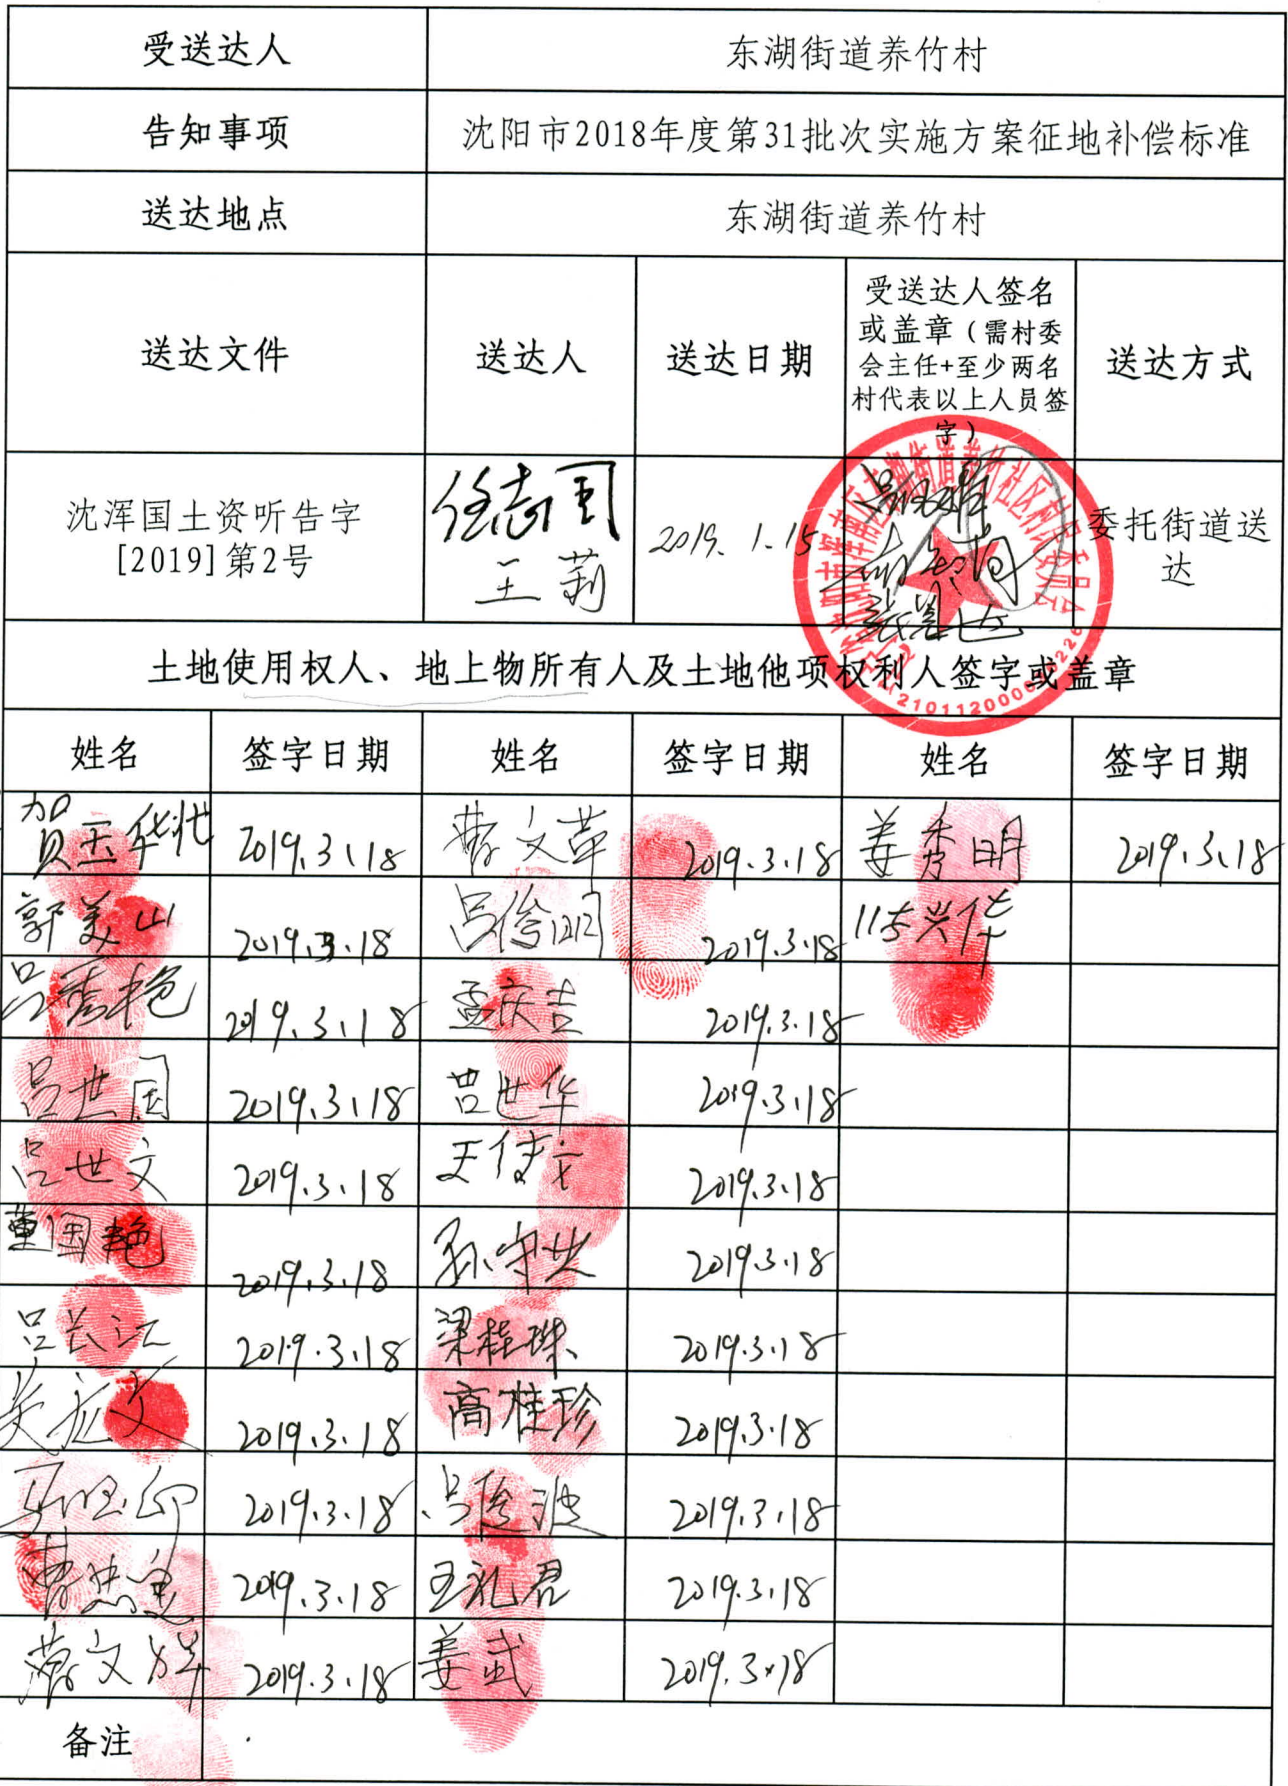 受送达人 东湖街道养竹村
告知事项 沈阳市2018年度第31批次实施方案征地补偿标准
送达地点 东湖街道养竹村
送达文件 送达人 送达日期 受送达人签名
或盖章（需村委
会主任+至少两名
村代表以上人员签
字）
送达方式
沈浑国土资听告字
[2019]第2号
任志国
王莉
2019.1.15
委托街道送
达
土地使用权人、地上物所有人及土地他项权利人签字或盖章
姓名 签字日期 姓名 签字日期 姓名 签字日期
贺玉华 2019.3.18 曹文革 2019.3.18 姜秀明 2019.3.18
郭美山 2019.3.18 吕俊明 2019.3.18 兴华
吕秀艳 2019.3.18 孟庆吉 2019.3.18
吕世国 2019.3.18 吕世华 2019.3.18
吕世文 2019.3.18 王 2019.3.18
董国艳 2019.3.18 孙守 2019.3.18
吕长江 2019.3.18 梁桂珠 2019.3.18
2019.3.18 高桂珍 2019.3.18
2019.3.18 吕 2019.3.18
曹 2019.3.18 王礼君 2019.3.18
文 2019.3.18 姜武 2019.3.18
备注